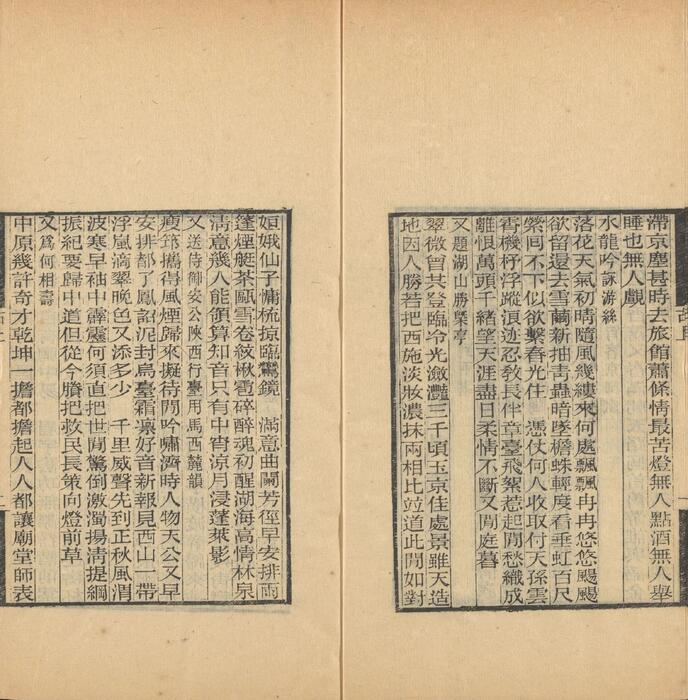 滯京塵甚時去旅館蕭條情最苦燈無人點酒無人舉
睡也無人覷
水龍吟詠游絲
落花天氣初晴隨風幾縷來何處飄飄冉冉悠悠颺颺
欲留還去雲繭新抽靑蟲暗墜檐蛛輕度看垂虹百尺
縈回不下似欲繫春光住　憑仗何人收取付天孫雲
霄機杼浮蹤浪迹忍教長伴章臺飛絮惹起閒愁織成
離恨萬頭千緒望天涯盡日柔情不斷又閒庭暮
又題湖山勝槩亭
翠微曾共登臨冷光瀲灩三千頃玉京佳處景雖天造
地因人勝若把西施淡妝濃抹兩相比竝道此閒如對
姮娥仙子慵梳掠臨鸞鏡　滿意曲闌芳徑早安排雨
篷煙艇茶甌雪卷紋楸雹碎醉魂初醒湖海高情林泉
淸意幾人能領算知音只有中宵涼月浸蓬萊影
又送侍御安公陝西行臺用馬西麓韻
瘦筇攜得風煙歸來擬待閒吟嘯濟時人物天公又早
安排都了鳳詔泥封烏臺霜凜好音新報見西山一帶
浮嵐滴翠晚色又添多少　千里威聲先到正秋風渭
波寒早袖中霹靂何須直把世閒驚倒激濁揚淸提綱
振紀要歸中道但從今賸把救民長策向燈前草
又爲何相壽
中原幾許奇才乾坤一擔都擔起人人都讓廟堂師表